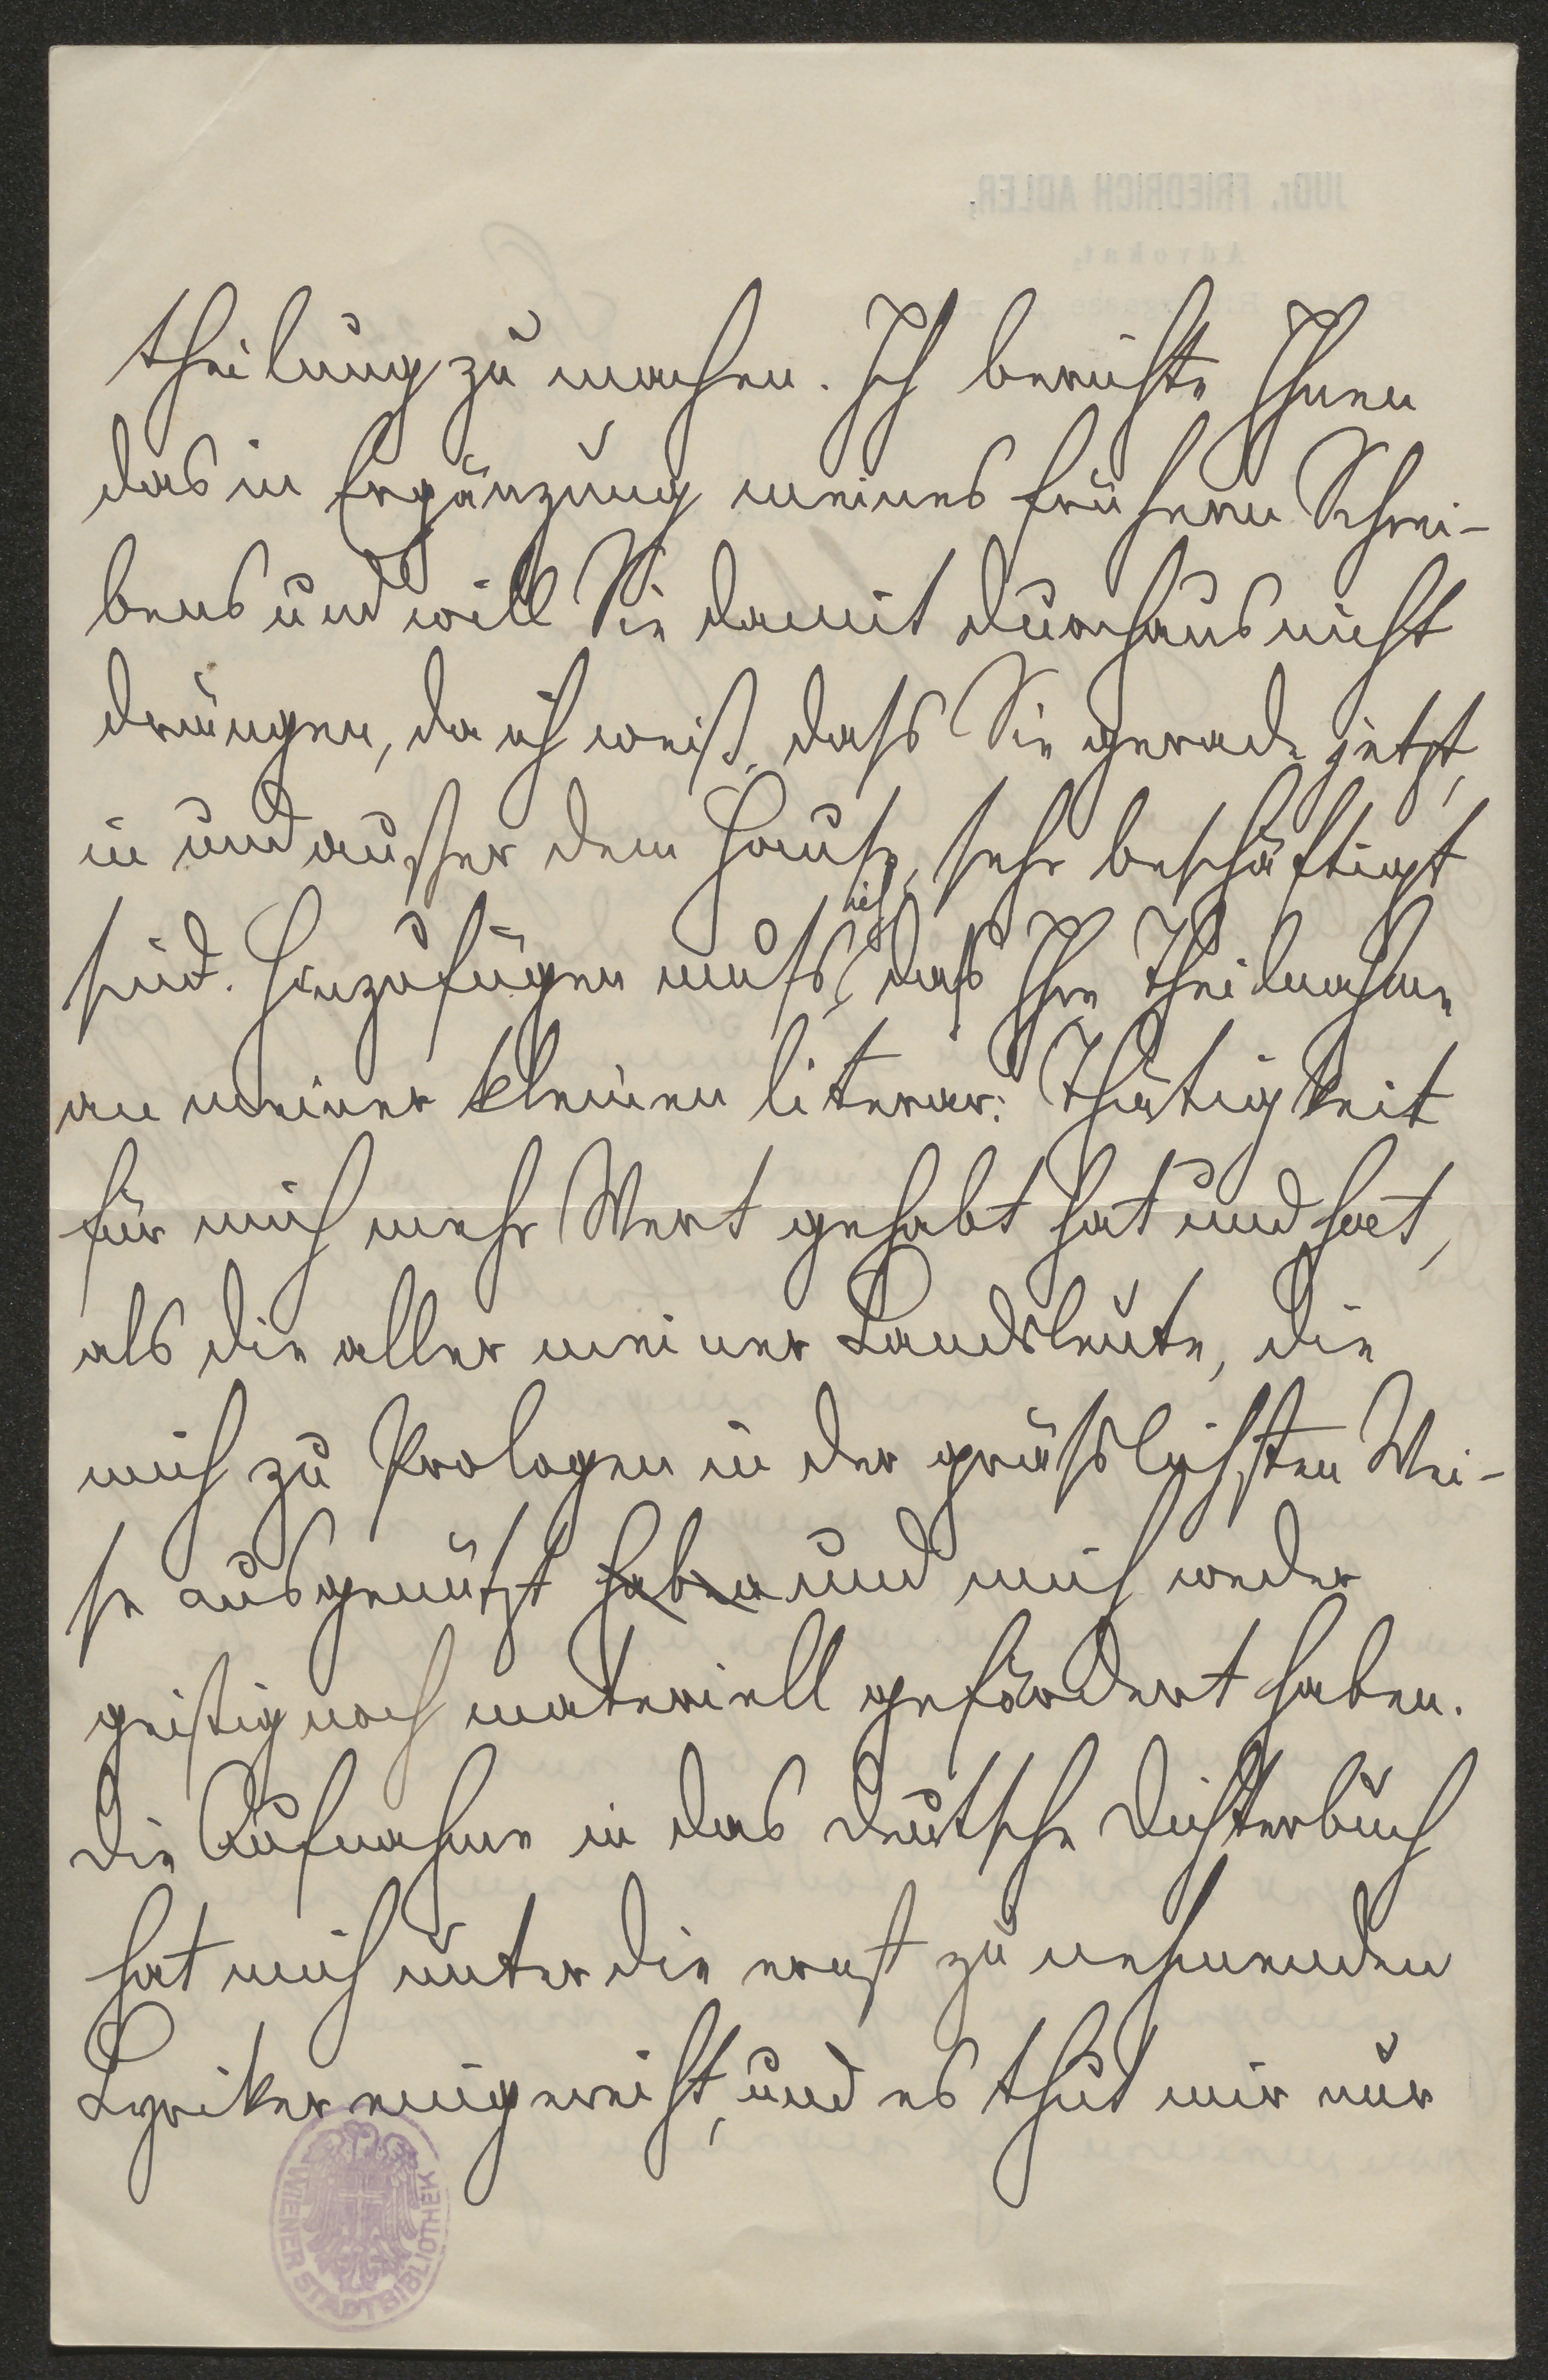 theilung zu machen. Ich berichte Ihnen
das in Ergänzung meines frühern Schrei-
bens und will Sie damit durchaus nicht
drängen, da ich weiß, dass Sie gerade jetzt,
in und ausser dem Hause, sehr beschäftigt
sind. Hinzufügen muss ich, dass Ihre Theilnahme
an meiner kleinen literar: Thätigkeit
für mich mehr Wert gehabt hat und hat,
als die aller meiner Landsleute, die
mich zu Prologen in der grässlichsten Wei-
se ausgenützt haben und mich weder
geistig noch materiell gefördert haben.
Die Aufnahme in das deutsche Dichterbuch
hat mich unter die ernst zu nehmenden
Lyriker eingereiht, und es thut mir nur
WIENER STADTBIBLIOTHEK
JUDr. FRIEDRICH ADLER,
Advokat,